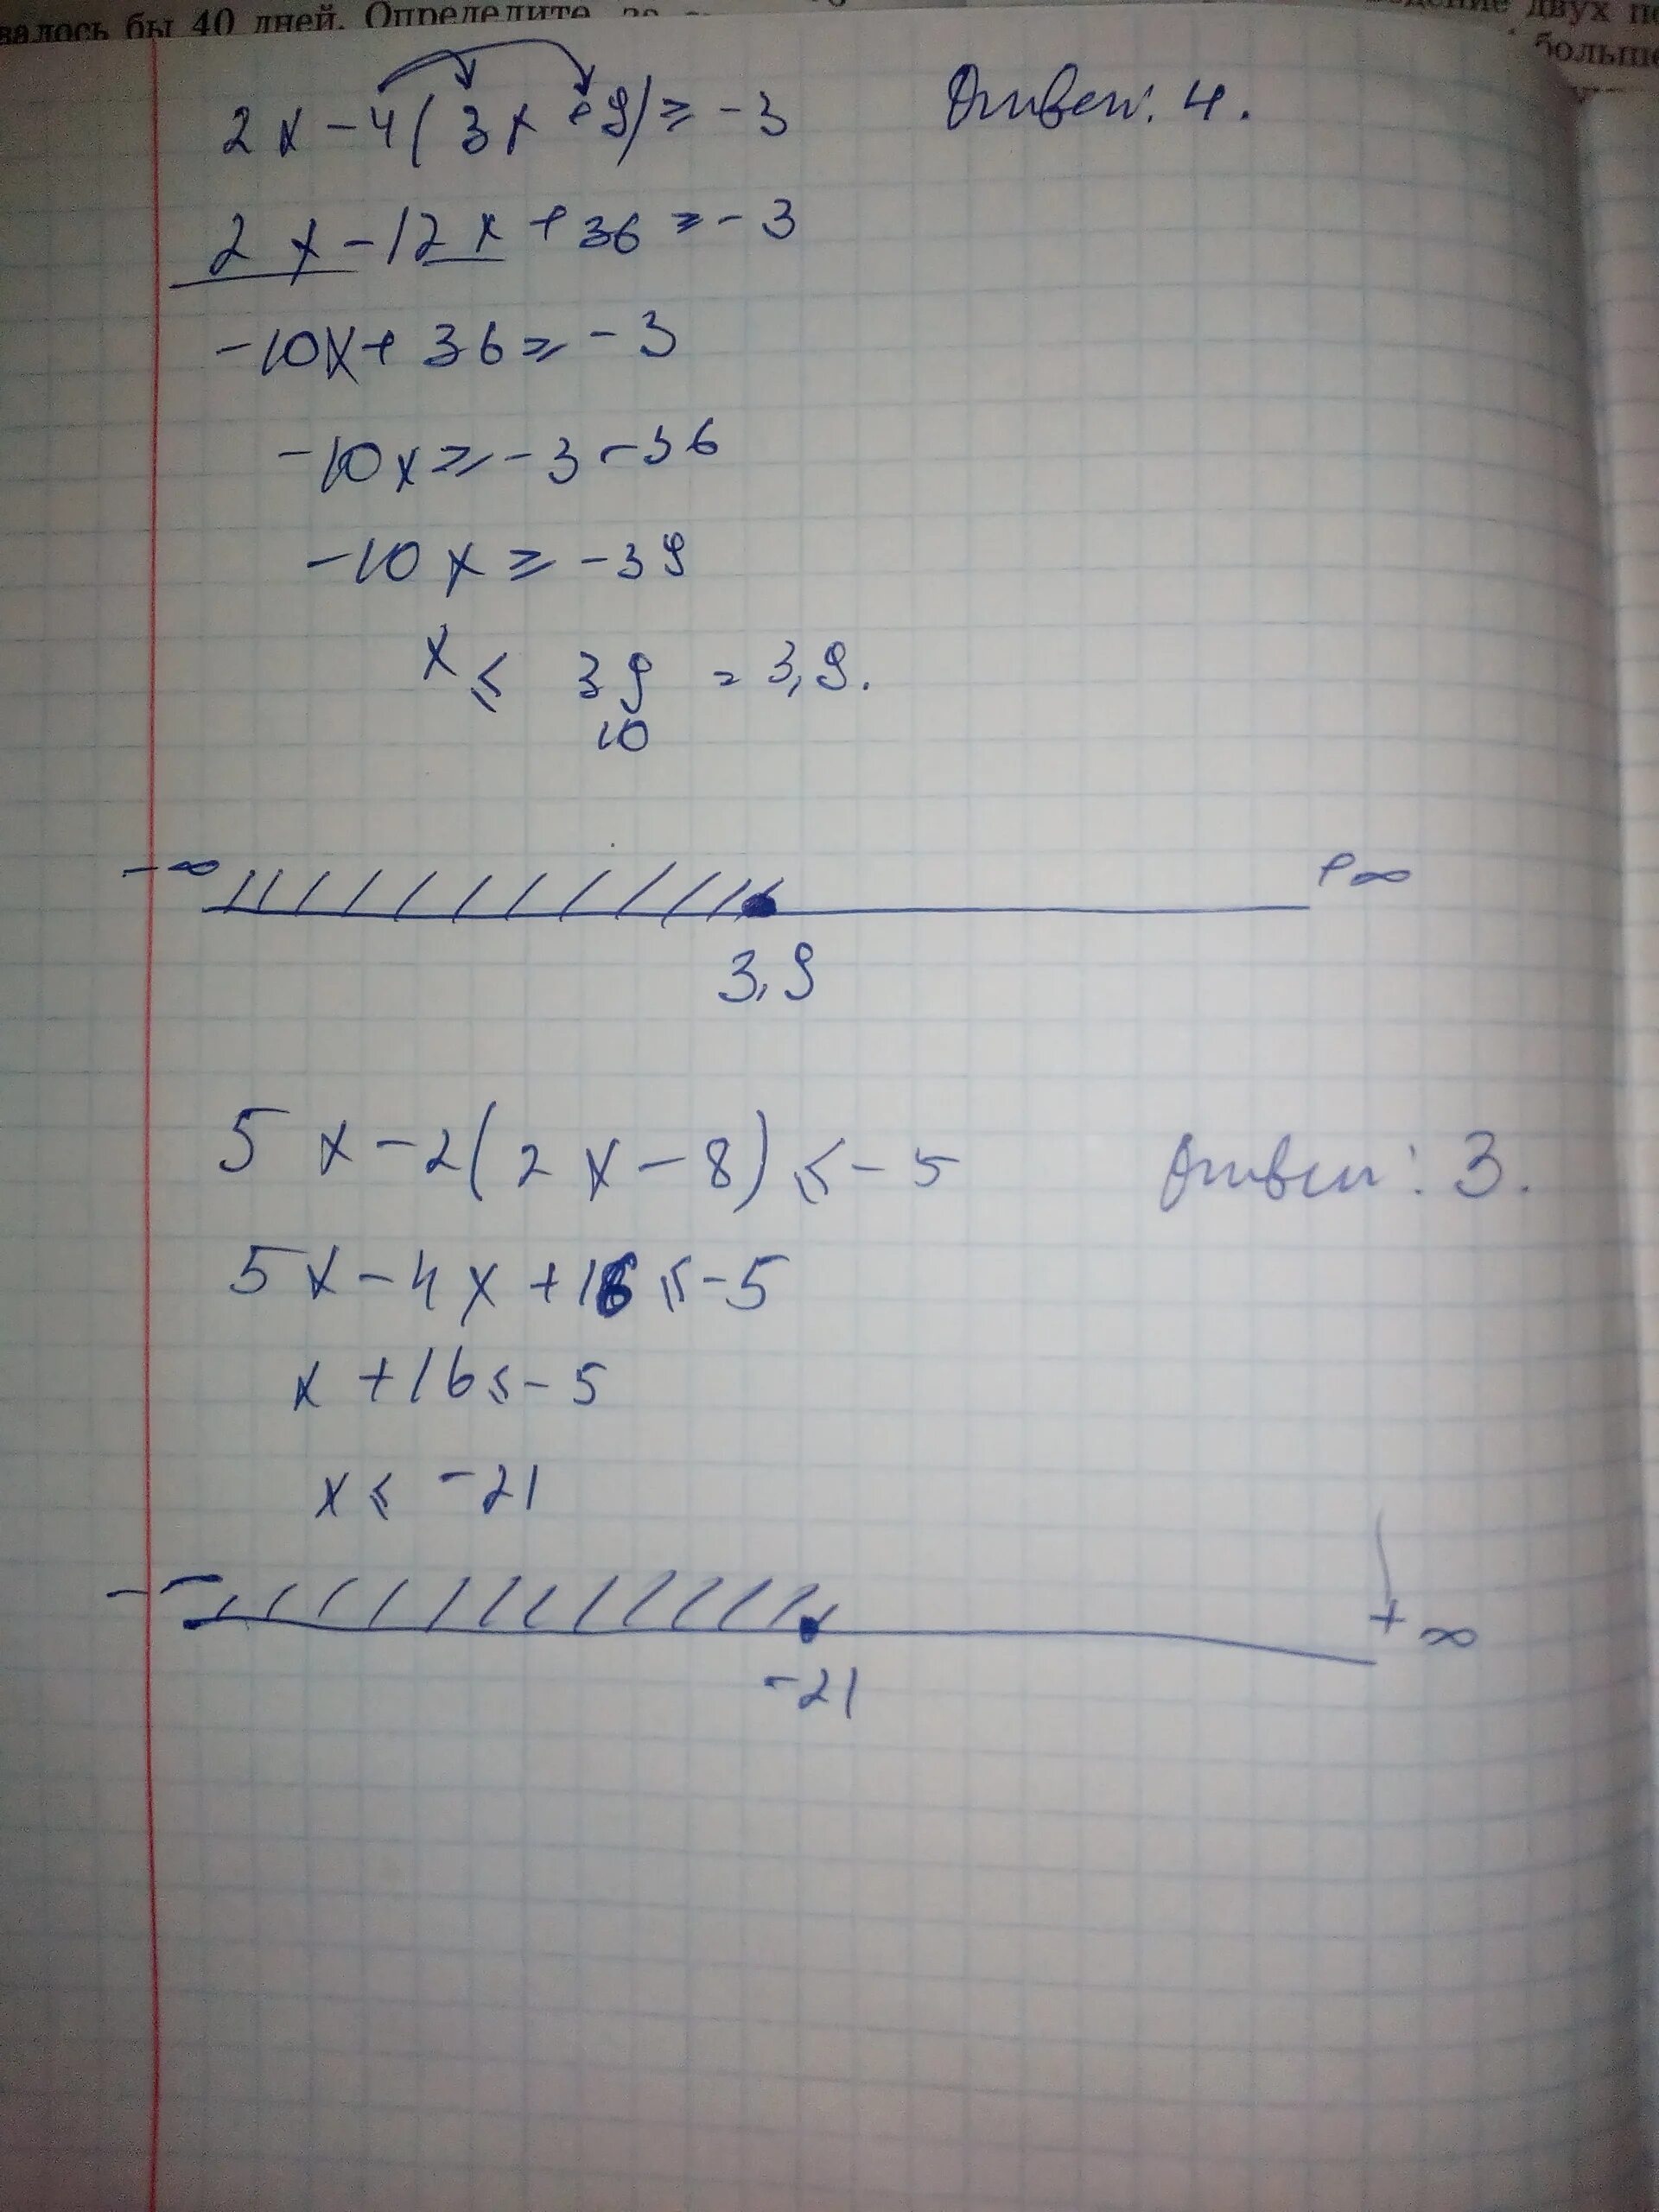 валось бы 40 дней. Определите
двух
больше
2x-4(3x+9)≥-3 Ответ: 4.
2x-12x+36≥-3
-10x+36≥-3
-10x≥-3-36
-10x≥-39
x≤ 39/10 = 3,9.
-∞ +∞
3,9
5x-2(2x-8)≤-5 Ответ: 3.
5x-4x+16≤-5
x+16≤-5
x≤-21
+∞
-21